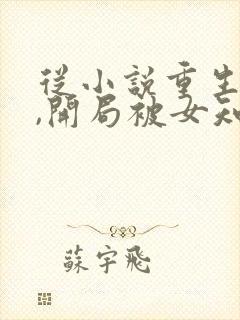 從小說重生
,開局被女知
蘇宇飛